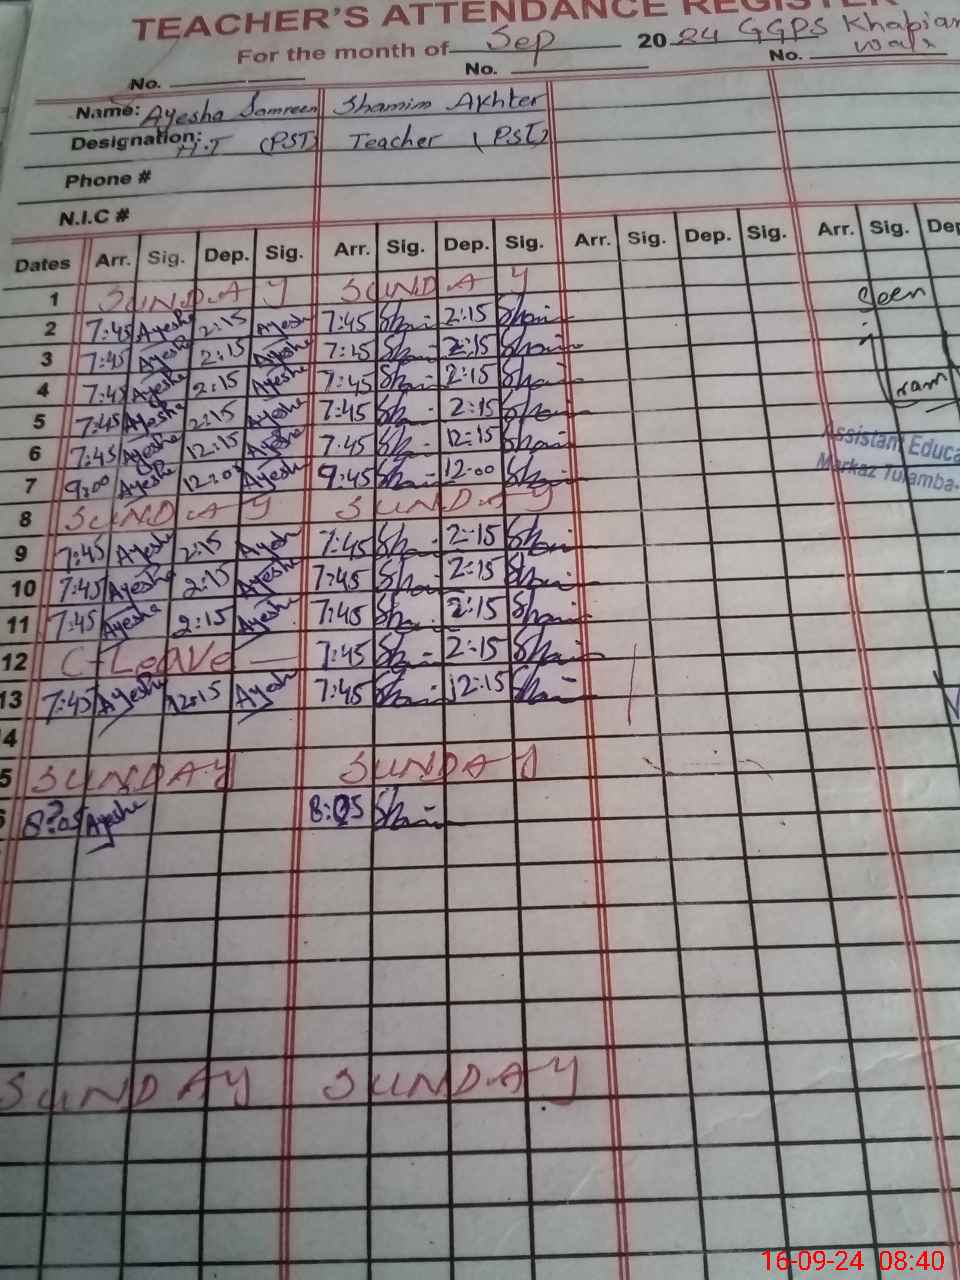 TEACHER'S ATTENDANCE REGISTER
For the month of Sep 2024 GGPS Khabian
wala
No. No. No.
Name: Ayesha Samreen Shamim Akhter
Designation: H.T (PST) Teacher (PST)
Phone #
N.I.C #
Dates Arr. Sig. Dep. Sig. Arr. Sig. Dep. Sig. Arr. Sig. Dep. Sig. Arr. Sig. Dep
1 SUNDAY SUNDAY
Seen
2 7:45 Ayesha 2:15 Ayesha 7:45 Sham 2:15 Sham
3 7:45 Ayesha 2:15 Ayesha 7:45 Sham 2:15 Sham
4 7:45 Ayesha 2:15 Ayesha 7:45 Sham 2:15 Sham
5 7:45 Ayesha 2:15 Ayesha 7:45 Sham 2:15 Sham
6 7:45 Ayesha 12:15 Ayesha 7:45 Sham 12:15 Sham
Assistant Educa
7 9:00 Ayesha 12:00 Ayesha 9:45 Sham 12:00 Sham
Markaz Tulamba
8 SUNDAY SUNDAY
9 7:45 Ayesha 2:15 Ayesha 7:45 Sham 2:15 Sham
10 7:45 Ayesha 2:15 Ayesha 7:45 Sham 2:15 Sham
11 7:45 Ayesha 2:15 Ayesha 7:45 Sham 2:15 Sham
12 C-Leave 7:45 Sham 2:15 Sham
13 7:45 Ayesha 12:15 Ayesha 7:45 Sham 12:15 Sham
4
5 SUNDAY SUNDAY
6 8:05 Ayesha 8:05 Sham
SUNDAY SUNDAY
16-09-24 08:40